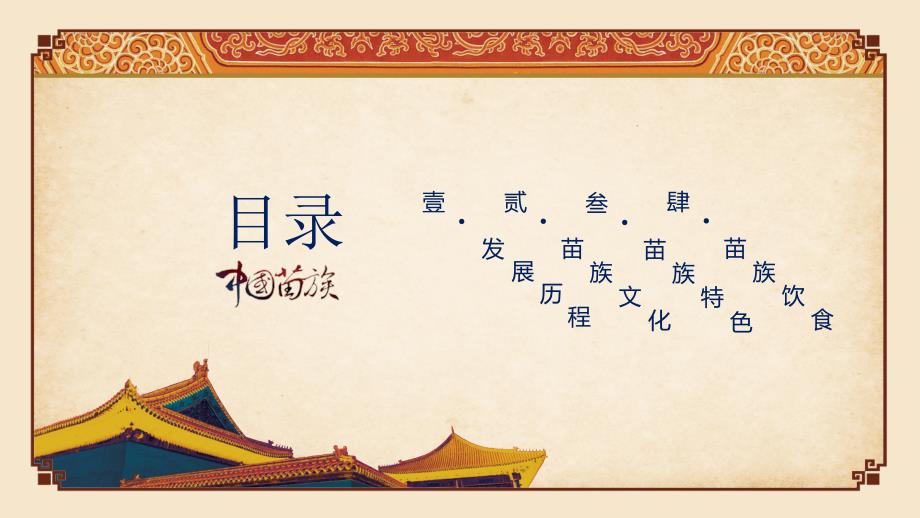 目录
中國苗族
壹·
发展历程
贰·
苗族文化
叁·
苗族特色
肆·
苗族饮食